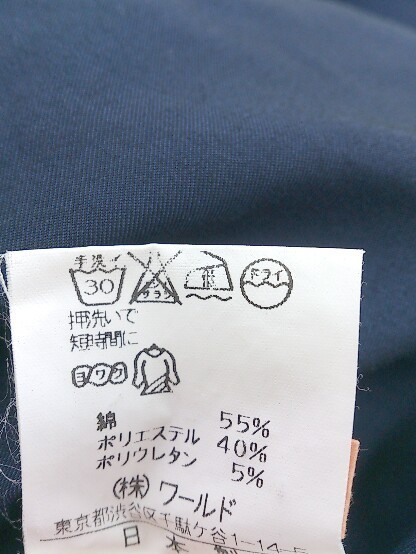 手洗イ
30
エンソ
サラシ
中
ドライ
押洗いで
短時間に
ヨワク
綿 55%
ポリエステル 40%
ポリウレタン 5%
(株) ワールド
東京都渋谷区千駄ケ谷1-14-5
日本製